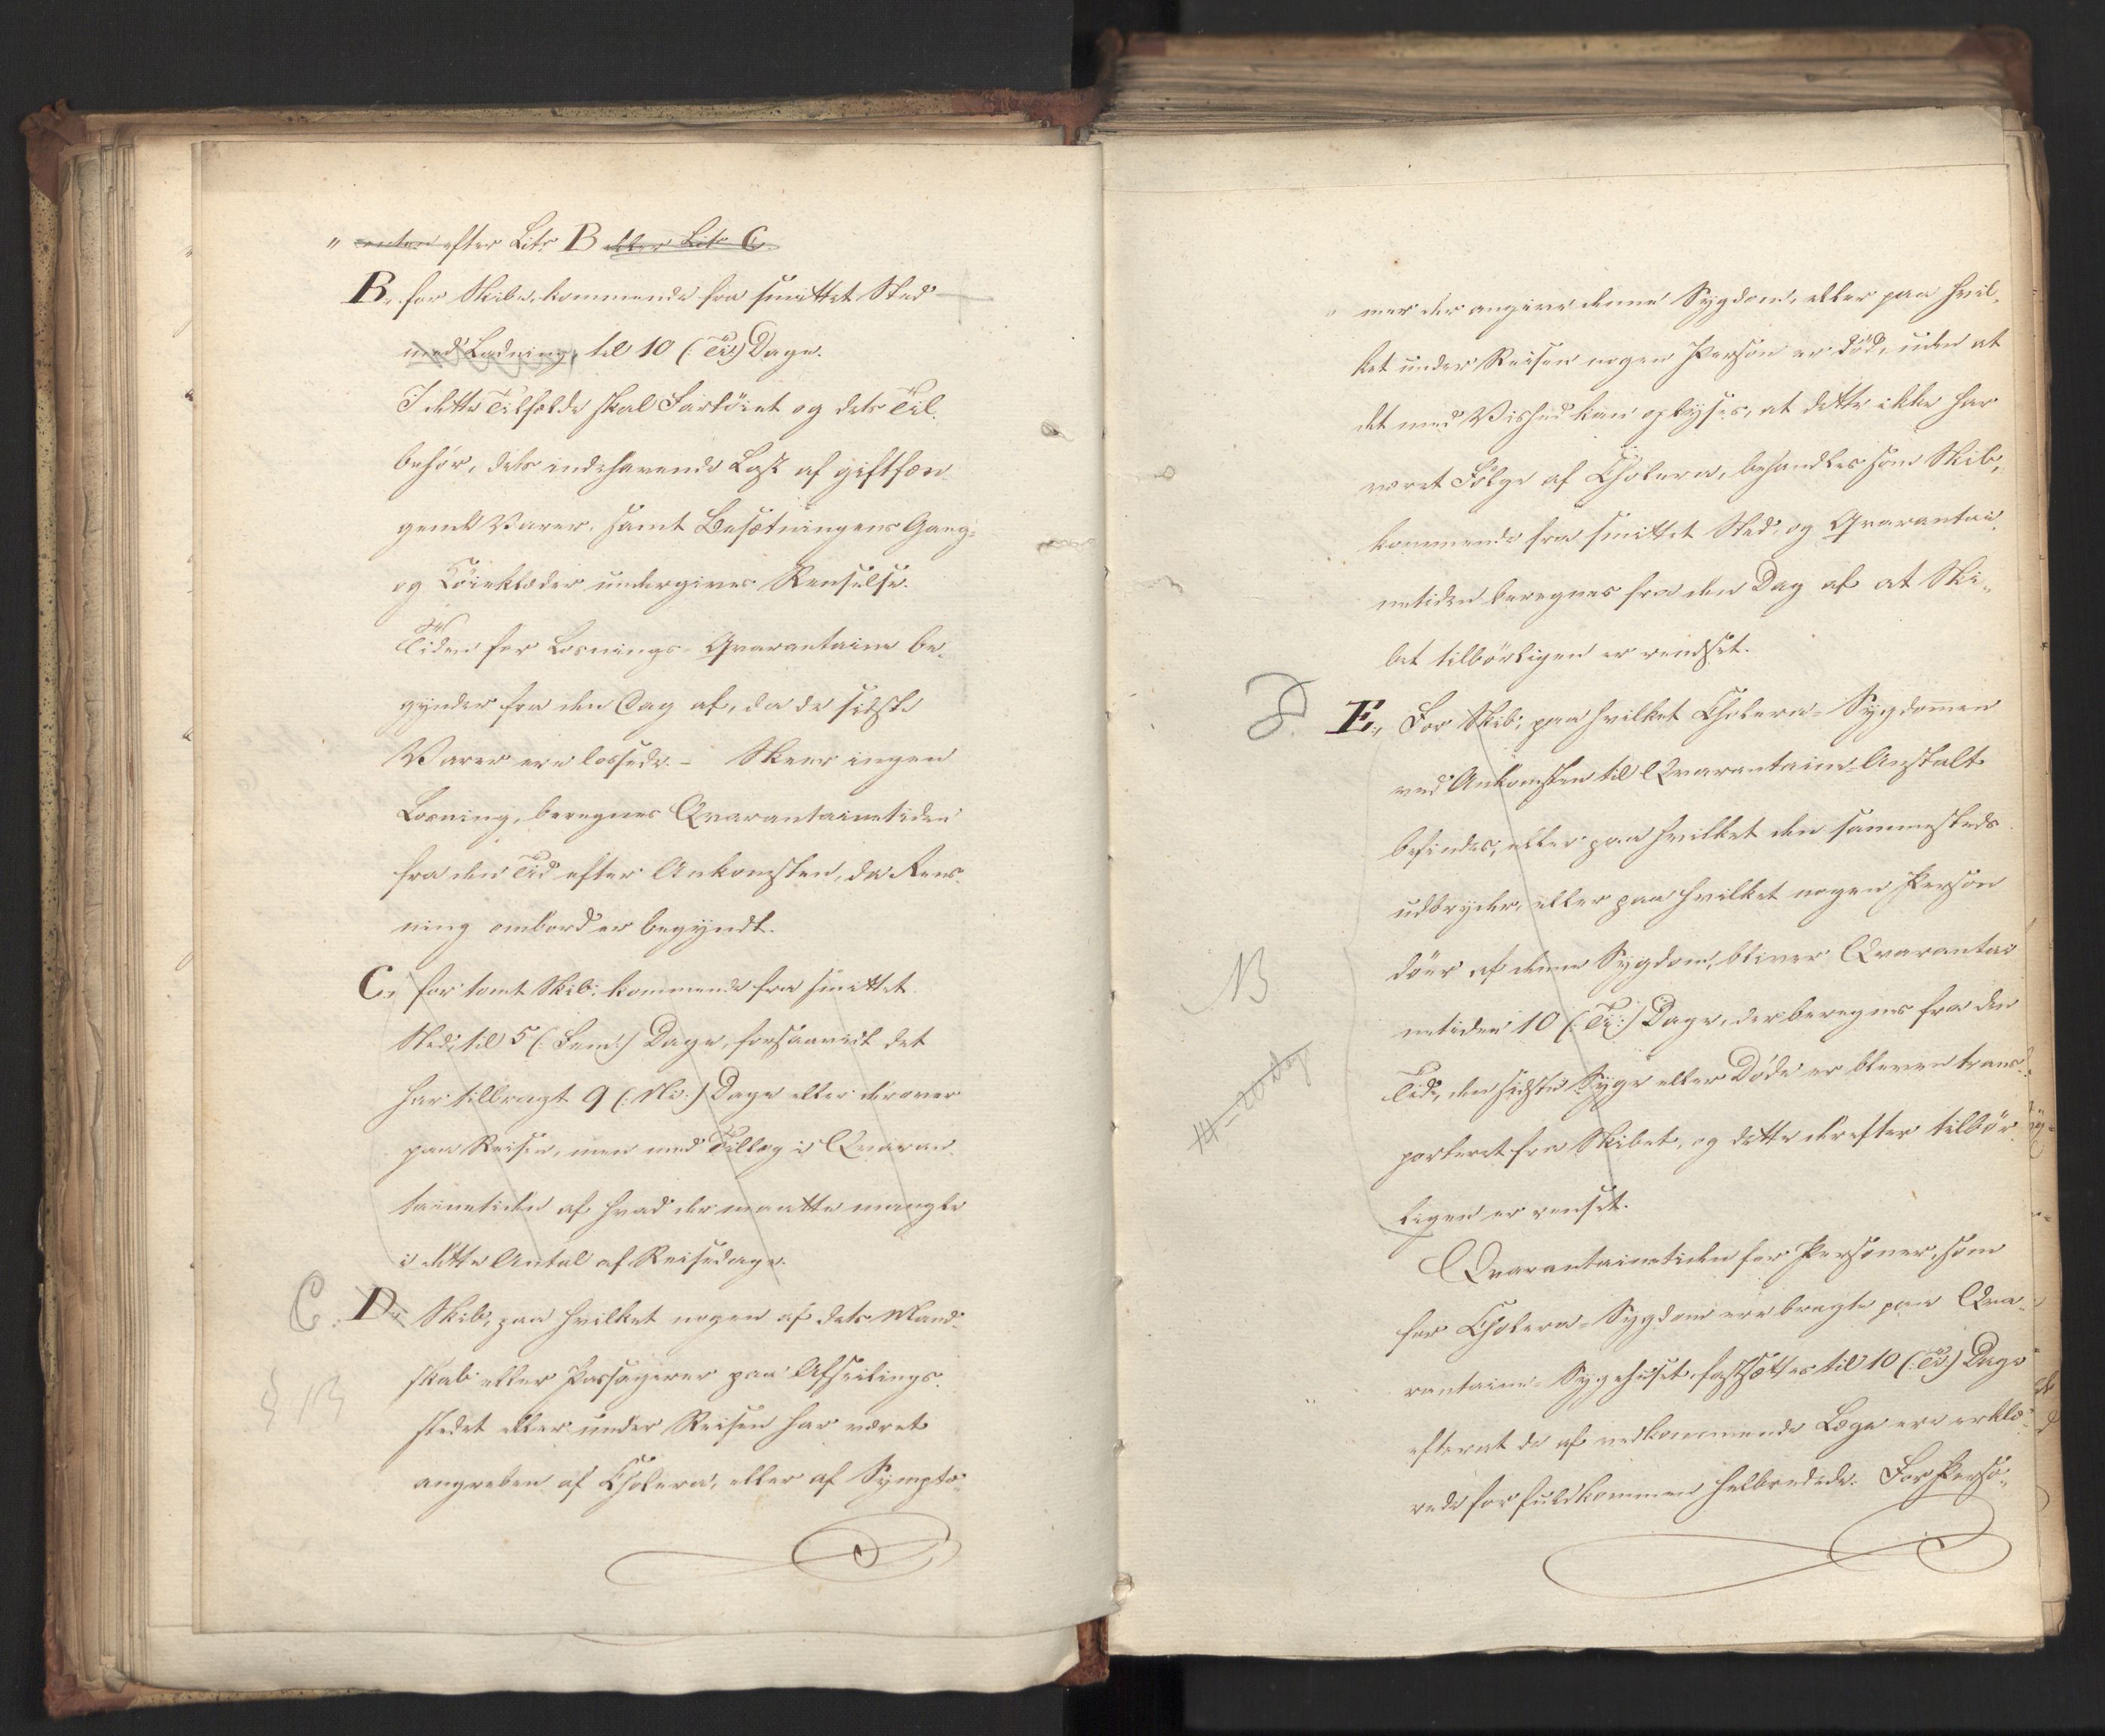 " enten efter Litr B eller Litr C.
B, for Skibe, kommende fra smittet Sted
med Ladning, til 10 (: Ti:) Dage.
I dette Tilfælde skal Fartöiet og dets Til-
behör, dets indehavende Last af giftfæn-
gende Varer, samt Besætningens Gang-
og Köieklæder undergives Renselse.
Tiden for Losnings-Qvarantaine be-
gynder fra den Dag af, da de sidste
Varer ere lossede. - Skeer ingen
Losning, beregnes Qvarantainetiden
fra den Tid efter Ankomsten, da Rens-
ning ombord er begyndt.
C, for tomt Skib, kommende fra smittet
Sted, til 5 (: Fem:) Dage, forsaavidt det
har tilbragt 9 (: Ni:) Dage eller derover
paa Reisen, men med Tillæg i Qvaran-
tainetiden af hvad der maatte mangle
i dette Antal af Reisedage.
C. D, Skib, paa hvilket nogen af dets Mand-
skab eller Passagerer paa Afseilings-
§ 13
stedet eller under Reisen har været
angreben af Cholera, eller af Sympto-
" mer der angive denne Sygdom, eller paa hvil-
ket under Reisen nogen Person er död, uden at
det med Vished kan oplyses, at dette ikke har
været Fölge af Cholera, behandles som Skib,
kommende fra smittet Sted, og Qvarantai-
netiden beregnes fra den Dag af at Ski-
bet tilbörligen er rendset.
D. E, For Skib, paa hvilket Cholera-Sygdommen
ved Ankomsten til Qvarantaine-Anstalt
befindes, eller paa hvilket den sammesteds
udbryder, eller paa hvilket nogen Person
döer af denne Sygdom, bliver Qvarantai-
NB
netiden 10 (: Ti:) Dage, der beregnes fra den
Tid, den sidste Syge eller Döde er bleven trans-
14-20 dag
porteret fra Skibet, og dette derefter tilbör-
ligen er renset.
Qvarantainetiden for Personer, som
for Cholera-Sygdom ere bragte paa Qva-
rantaine-Sygehuset, fastsættes til 10 (: Ti:) Dage
efterat de af vedkommende Læge ere erklæ-
rede for fuldkommen helbredede. For Perso-